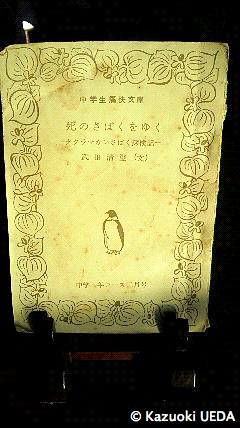 中学生痛快文庫
死のさばくをゆく
タクラマカンさばく探検記
武田清澄(文)
中学一年コース二月号
© Kazuoki UEDA